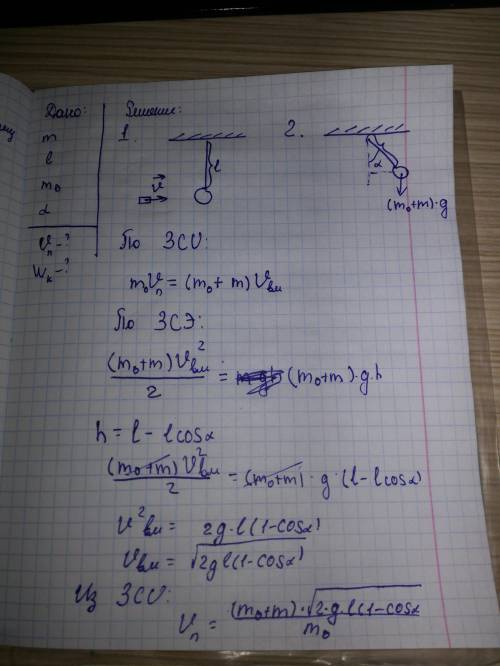 Дано: Решение:
m 1. 2.
l l
m₀ v⃗ α
α (m₀+m)·g
Vₙ-? По ЗСИ:
Wₖ-?
m₀Vₙ = (m₀ + m) Vвм
По ЗСЭ:
(m₀+m)V²вм / 2 = (m₀+m)·g·h
h = l - l cosα
(m₀+m)V²вм / 2 = (m₀+m)·g·(l-lcosα)
V²вм = 2g·l(1-cosα)
Vвм = √2gl(1-cosα)
Из ЗСИ:
Vₙ = (m₀+m)·√2·g·l(1-cosα / m₀